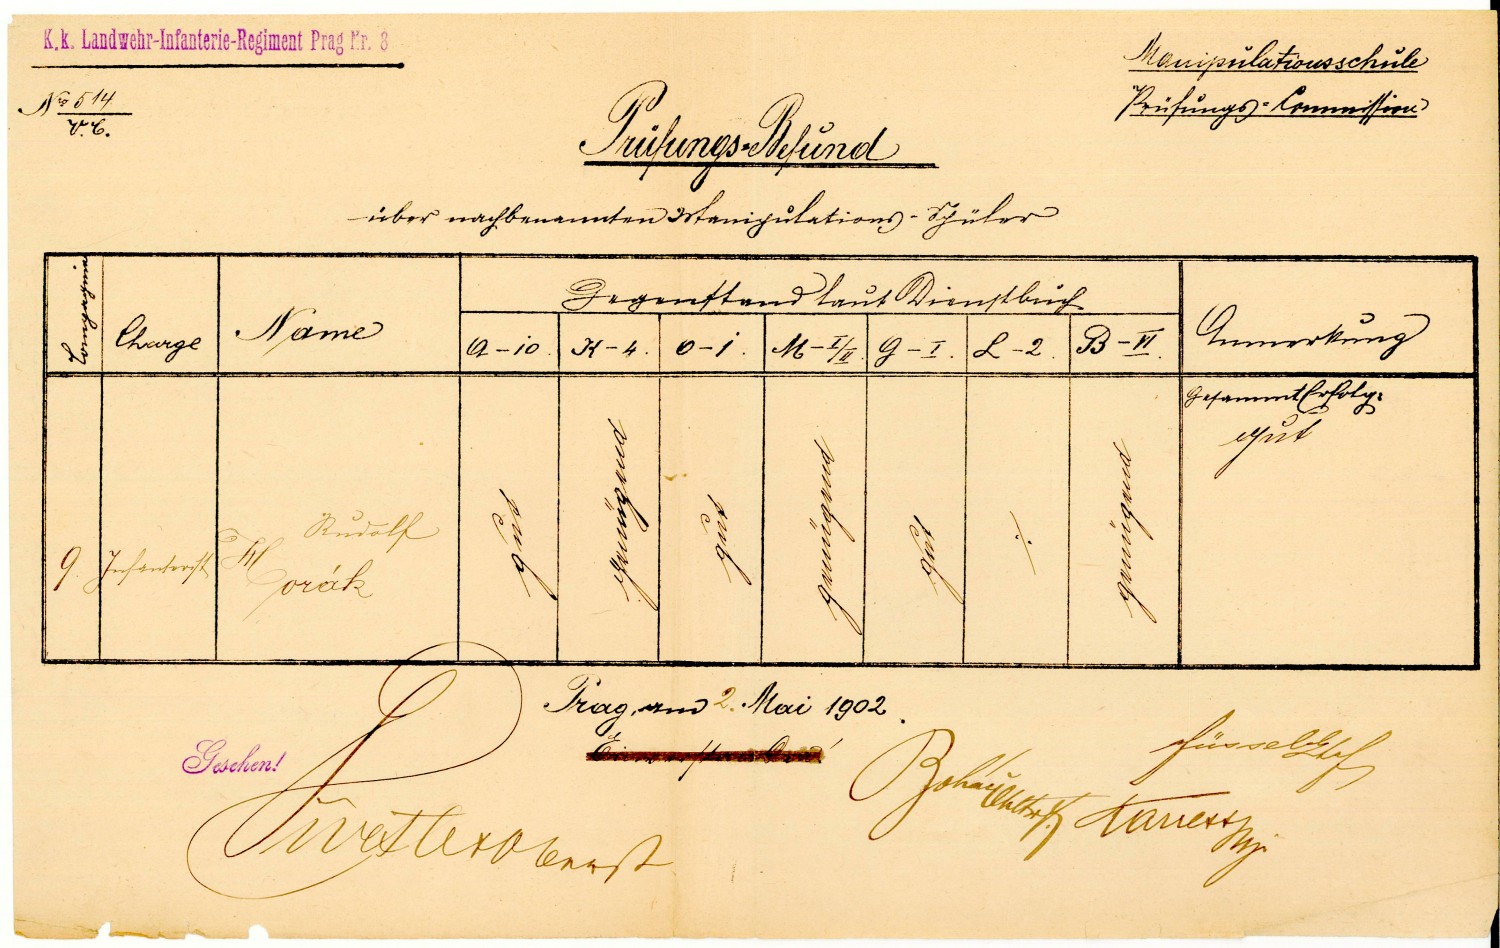 K.k. Landwehr-Infanterie-Regiment Prag Nr. 8
Manipulationsschule
Prüfungs-Commission
No 514
Prüfungs-Befund
über nachbenannten Manipulations-Schüler
Compagnie
Charge
Name
Gegenstand laut Dienstbuch
A-10.
K-4.
O-1.
M-I/II
G-I.
L-2.
B-VI.
Anmerkung
9.
Infanterist
Rudolf
Horák
gut
genügend
gut
genügend
gut
÷
genügend
Gesammt Erfolg:
gut
Prag, am 2. Mai 1902.
Gesehen!
Oberst